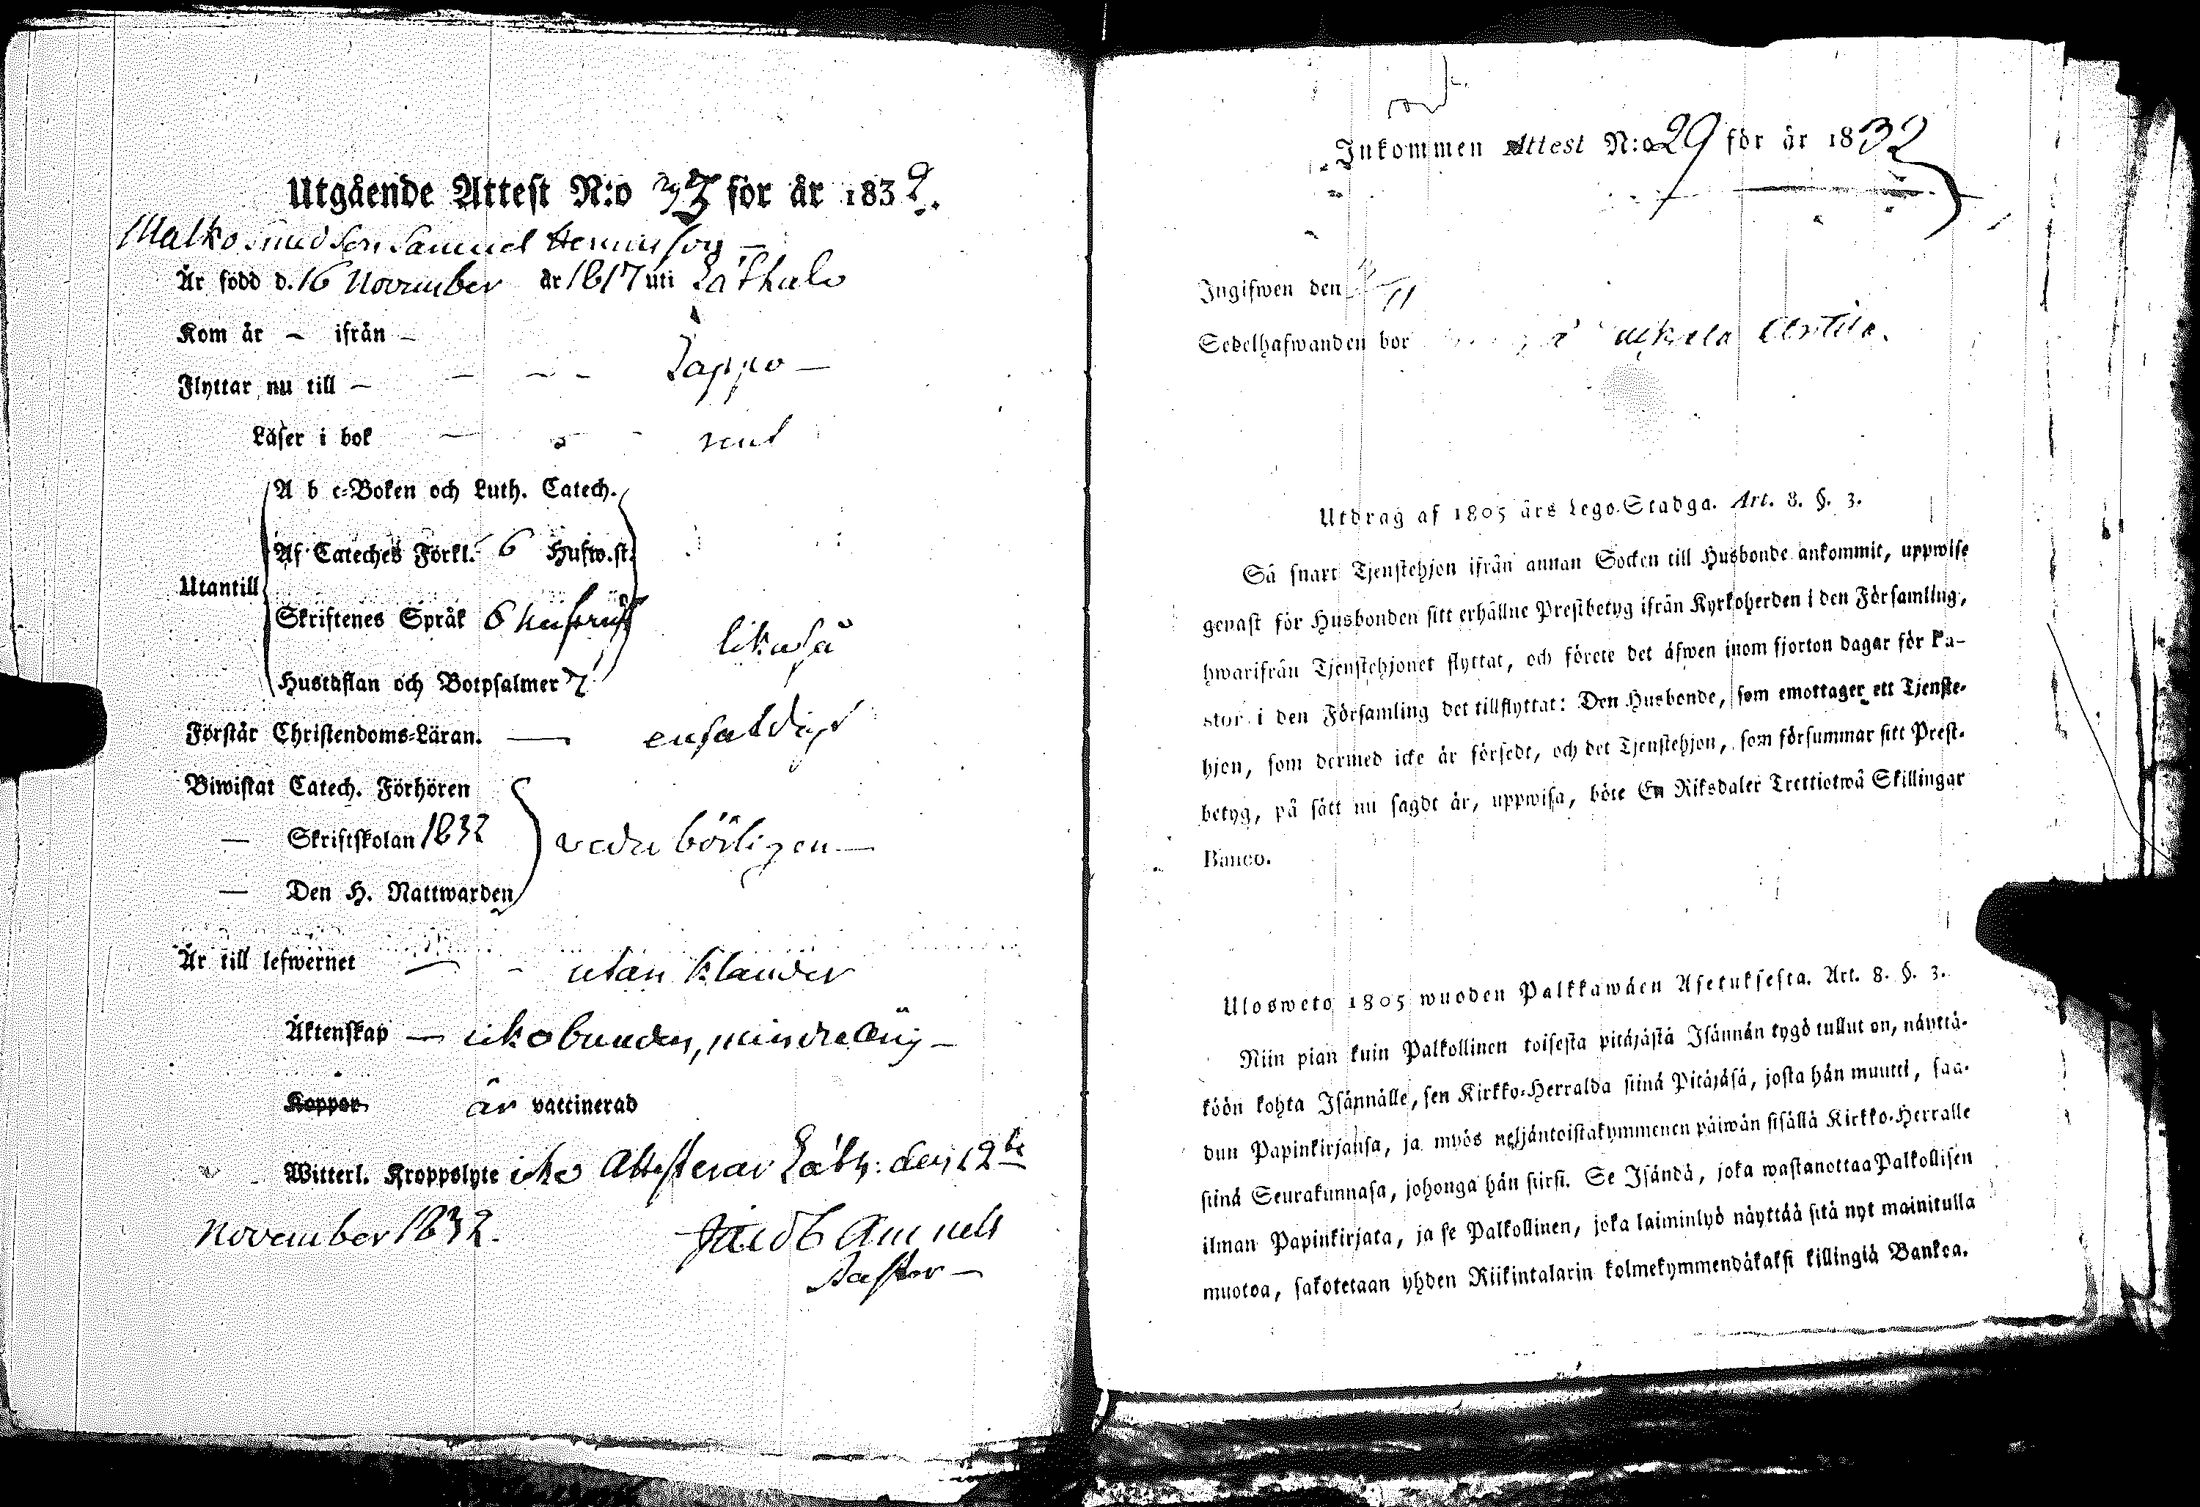 Utgående Attest N:o för år 1832.
Samuel
Är född d. 16 November år 1817 uti
Kom år — ifrån —
Flyttar nu till — Lappo —
Läser i bok — rent
A b c-Boken och Luth. Catech.
Af Cateches Förkl. 6 Hufw.st.
Utantill
Skriftenes Språk 6
likaså
Hustaflan och Botpsalmer
Förstår Christendoms-Läran. — enfaldigt
Biwistat Catech. Förhören
— Skriftskolan 1832 vederbörligen —
— Den H. Nattwarden
Är till lefwernet — utan klander
Äktenskap —
Koppor är vaccinerad
Witterl. Kroppslyte icke Attesterar den 12te
November 1832. Jacob
Pastor —
Inkommen Attest N:o 29 för år 1832
Ingifwen den
Sedelhafwanden bor
Utdrag af 1805 års Lego-Stadga. Art. 8. §. 3.
Så snart Tjenstehjon ifrån annan Socken till Husbonde ankommit, uppwise
genast för Husbonden sitt erhållne Prestbetyg ifrån Kyrkoherden i den Församling,
hwarifrån Tjenstehjonet flyttat, och förete det äfwen inom fjorton dagar för Pa-
stor i den Församling det tillflyttat: Den Husbonde, som emottager ett Tjenste-
hjon, som dermed icke är försedt, och det Tjenstehjon, som försummar sitt Prest-
betyg, på sätt nu sagdt är, uppwisa, böte En Riksdaler Trettiotwå Skillingar
Banco.
Ulosweto 1805 wuoden Palkkawäen Asetuksesta. Art. 8. §. 3.
Niin pian kuin Palkollinen toisesta pitäjästä Isännän tygö tullut on, näyttä-
köön kohta Isännälle, sen Kirkko-Herralda siinä Pitäjäsä, josta hän muutti, saa-
dun Papinkirjansa, ja myös neljäntoistakymmenen päiwän sisällä Kirkko-Herralle
siinä Seurakunnasa, johonga hän siirsi. Se Isändä, joka wastanottaa Palkollisen
ilman Papinkirjata, ja se Palkollinen, joka laiminlyö näyttää sitä nyt mainitulla
muotoa, sakotetaan yhden Riikintalarin kolmekymmendäkaksi killingiä Bankoa.